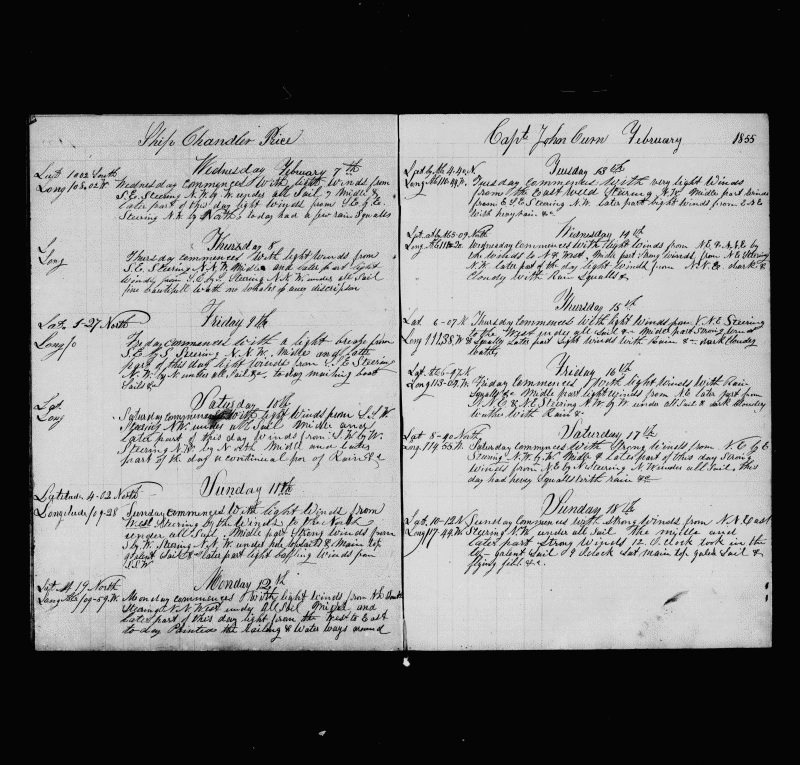 Ship Chandler Price
Lat 1002 South
Long 108.02 W
Wednesday February 7th
Wednesday commences with light winds from
S.E. Steering N.W. under all Sail Middle &
later part of this day light winds from S.E. by E.
Steering N.W. by North to day had a few rain Squalls
Thursday 8
Long
Thursday commences with light winds from
S.E. Steering N.N.W. Middle and later part light
winds from S.E. Steering N.N.W. under all Sail
fine with no whales of any
Lat. 1-27 North
Long
Friday 9th
Friday commences with a light breeze from
S.E. by S Steering N.N.W. Middle and latter
part of this day light winds from S.E. Steering
N.W. by N. under all Sail &c. to day making boat
Sails &c
Lat
Long
Saturday 10th
Saturday commences with light winds from S.S.W.
Steering N.W. under all Sail Middle and
later part of this day winds from S.W. by W.
Steering N.W. by North Middle and later
part of the day a continual of Rain &c
Latitude 4-02 North
Longitude 109-28
Sunday 11th
Sunday commences with light winds from
West Steering by the winds to the North
under all Sail. Middle part Strong winds from
S by W. Steering N.N.W. under & Main top
galent Sail & later part light baffling winds from
S.S.W.
Lat 19 North
Long 109-59. W.
Monday 12th
Monday commences with light winds from
Steering N.N. West under all Sail Middle and
later part of this day light from the West to East
to day Painted the Railing & Water ways around
Capt John Curn February 1855
Lat by Ab 4-40 N.
Long Ab 110-49 W.
Tuesday 13th
Tuesday commences with very light winds
from the East ward Steering N.W. Middle part winds
from E.S.E. Steering N.W. later part light winds from E.N.E
with
Wednesday 14th
Wednesday commences with light winds from N.E. & N.E.E by
the winds to N & West. Middle part Strong winds from N.E. Steering
N.W. later part of the day light winds from N.N.E. dark &
Cloudy with Rain Squalls &
Thursday 15th
Lat 6-07 N
Long 111.38 W
Thursday commences with light winds from N.N.E Steering
to the West under all Sail &c Middle part Strong winds
& Squally later part light winds with Rain &c. dark cloudy
Friday 16th
Long 113-09. W.
Friday commences with light winds with Rain
Squalls &c Middle part light winds from N.E. later part from
N.N.E. & N.E. Steering N.W. by W under all Sail & dark Cloudy
with Rain &
Saturday 17th
Lat 8-40 North
Long 114.55. W.
Saturday commences with Strong winds from N.E. by E
Steering N.W. by W. Middle & later part of this day Strong
winds from N.E. by N. Steering N.W. under all Sail. this
day had heavy Squalls with rain &c
Sunday 18th
Lat. 10-12 N
Long 117-49. W.
Sunday commences with strong winds from N.N. East
Steering N.W. under all Sail The middle and
later part strong winds 12 O clock took in the
galent Sail 9 O clock Sat main top galent Sail &
flying